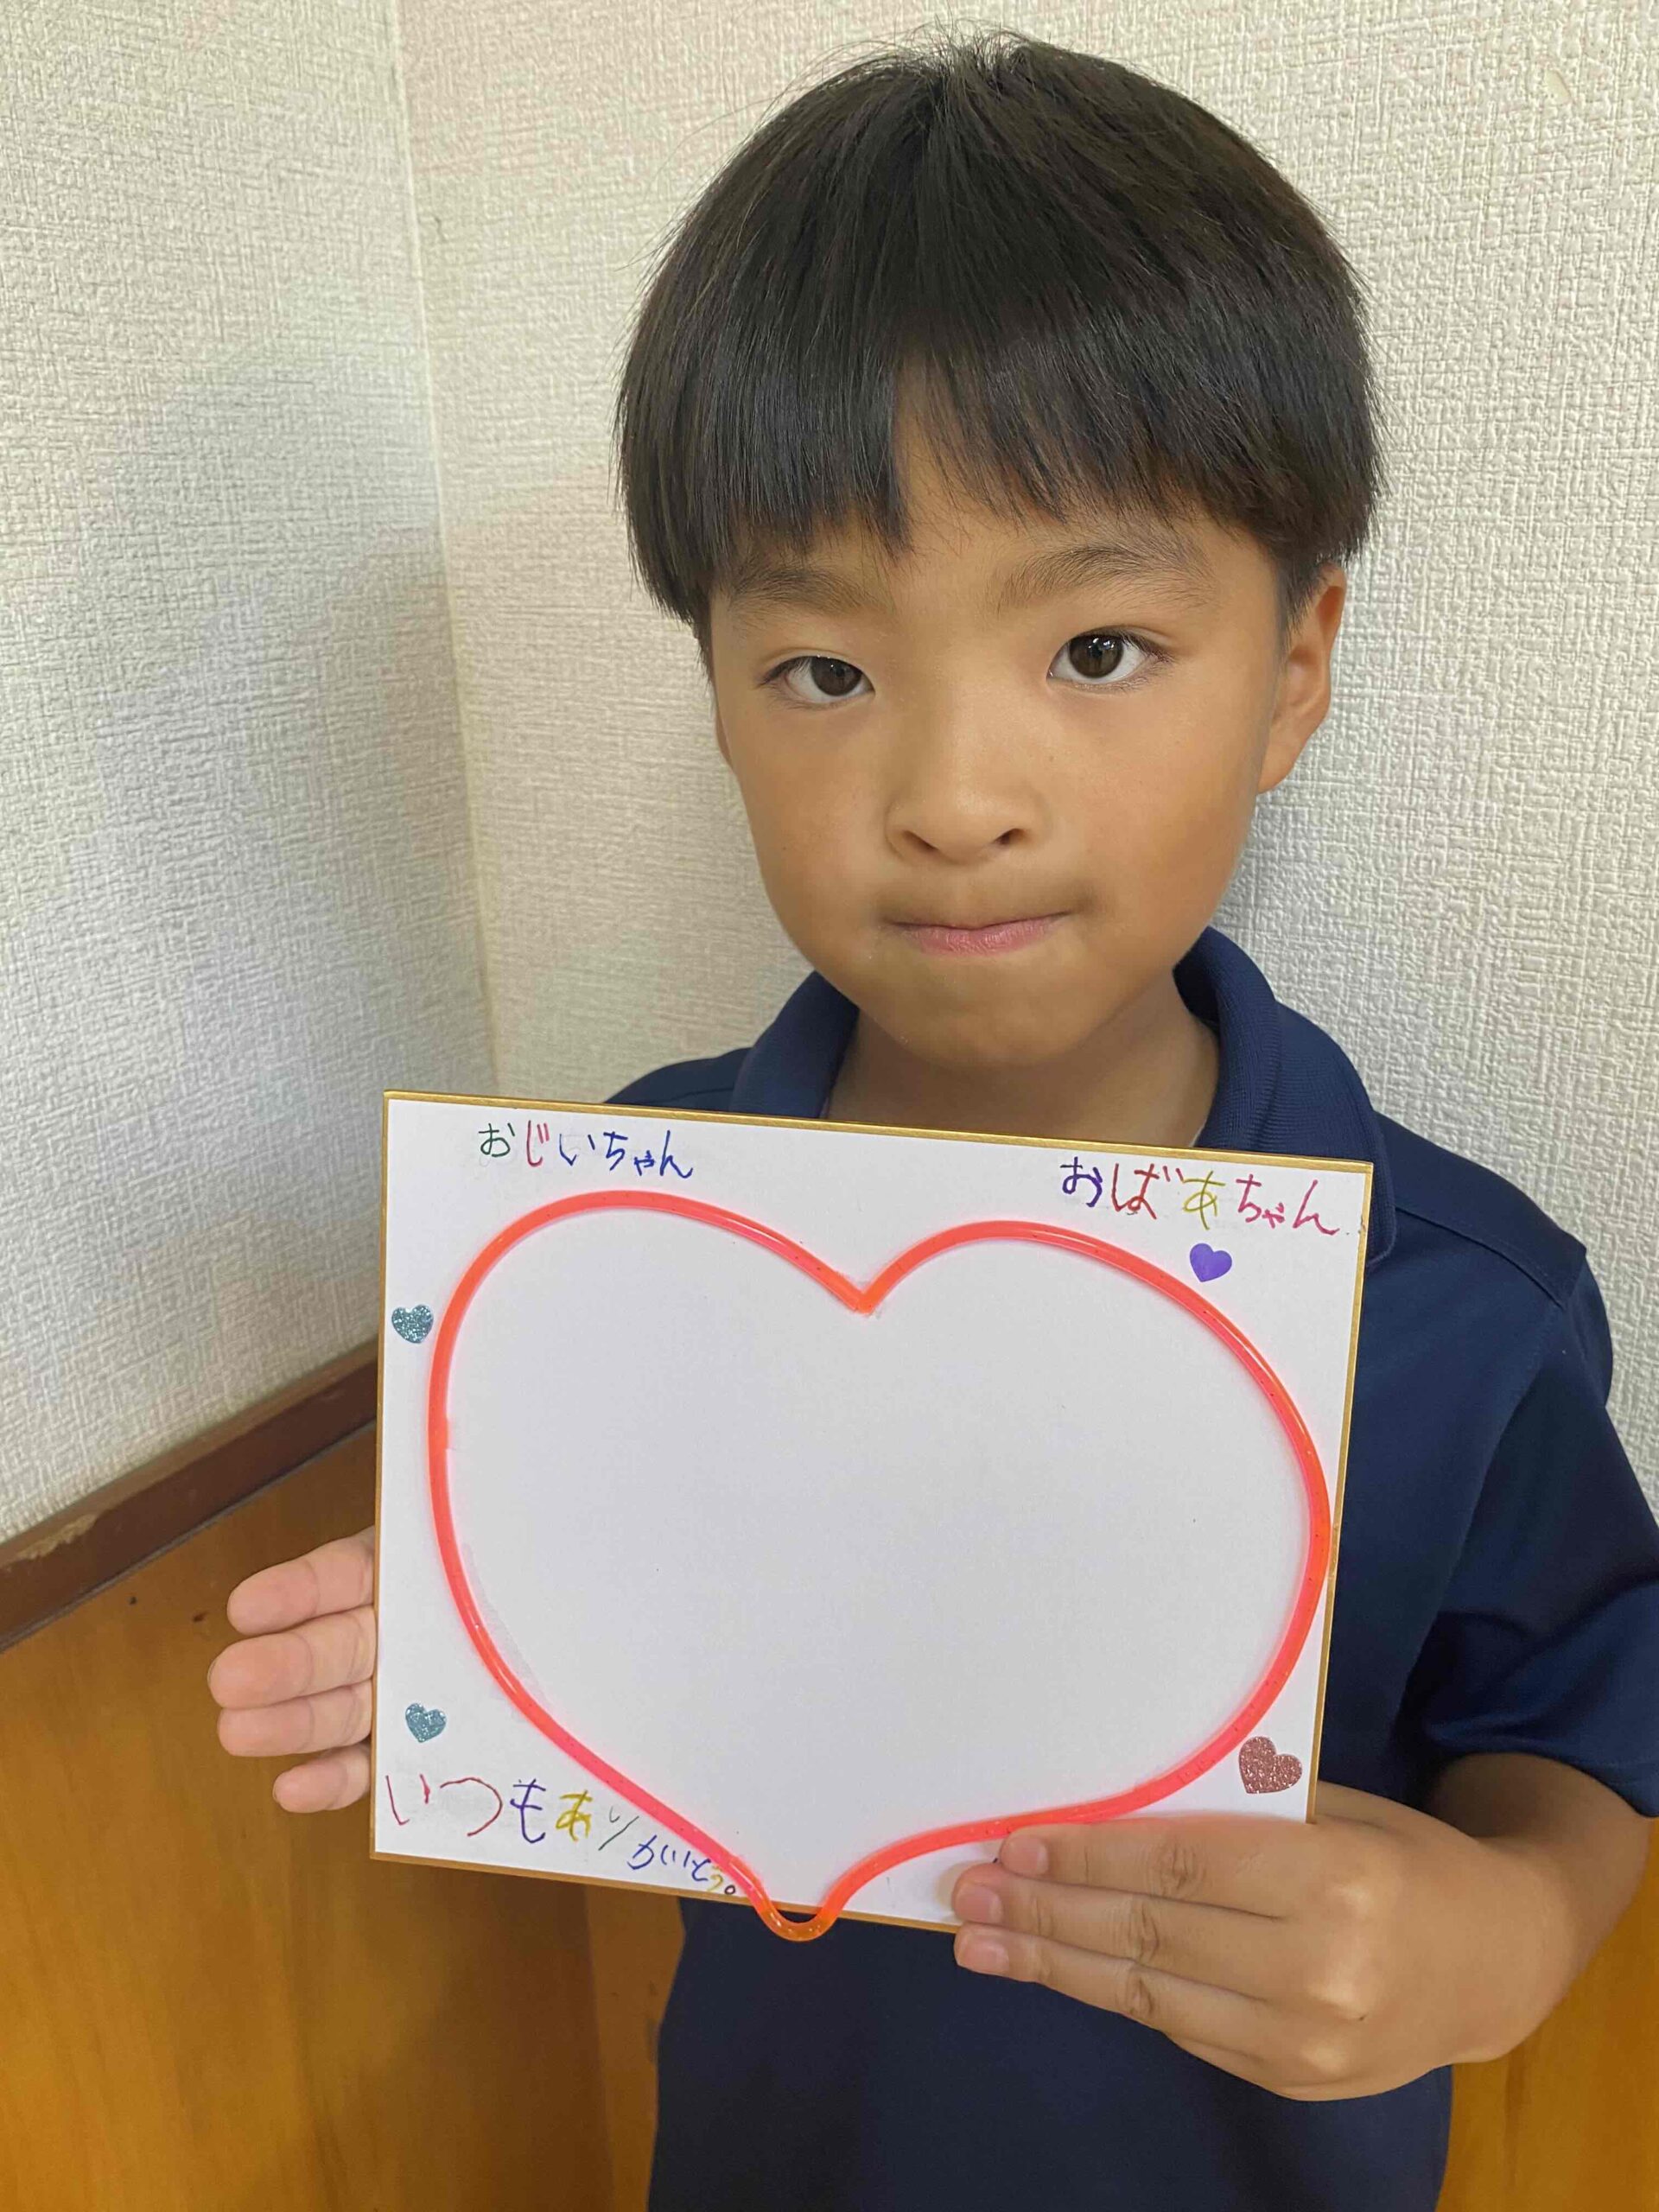 おじいちゃん
おばあちゃん
いつもあり
がとう。